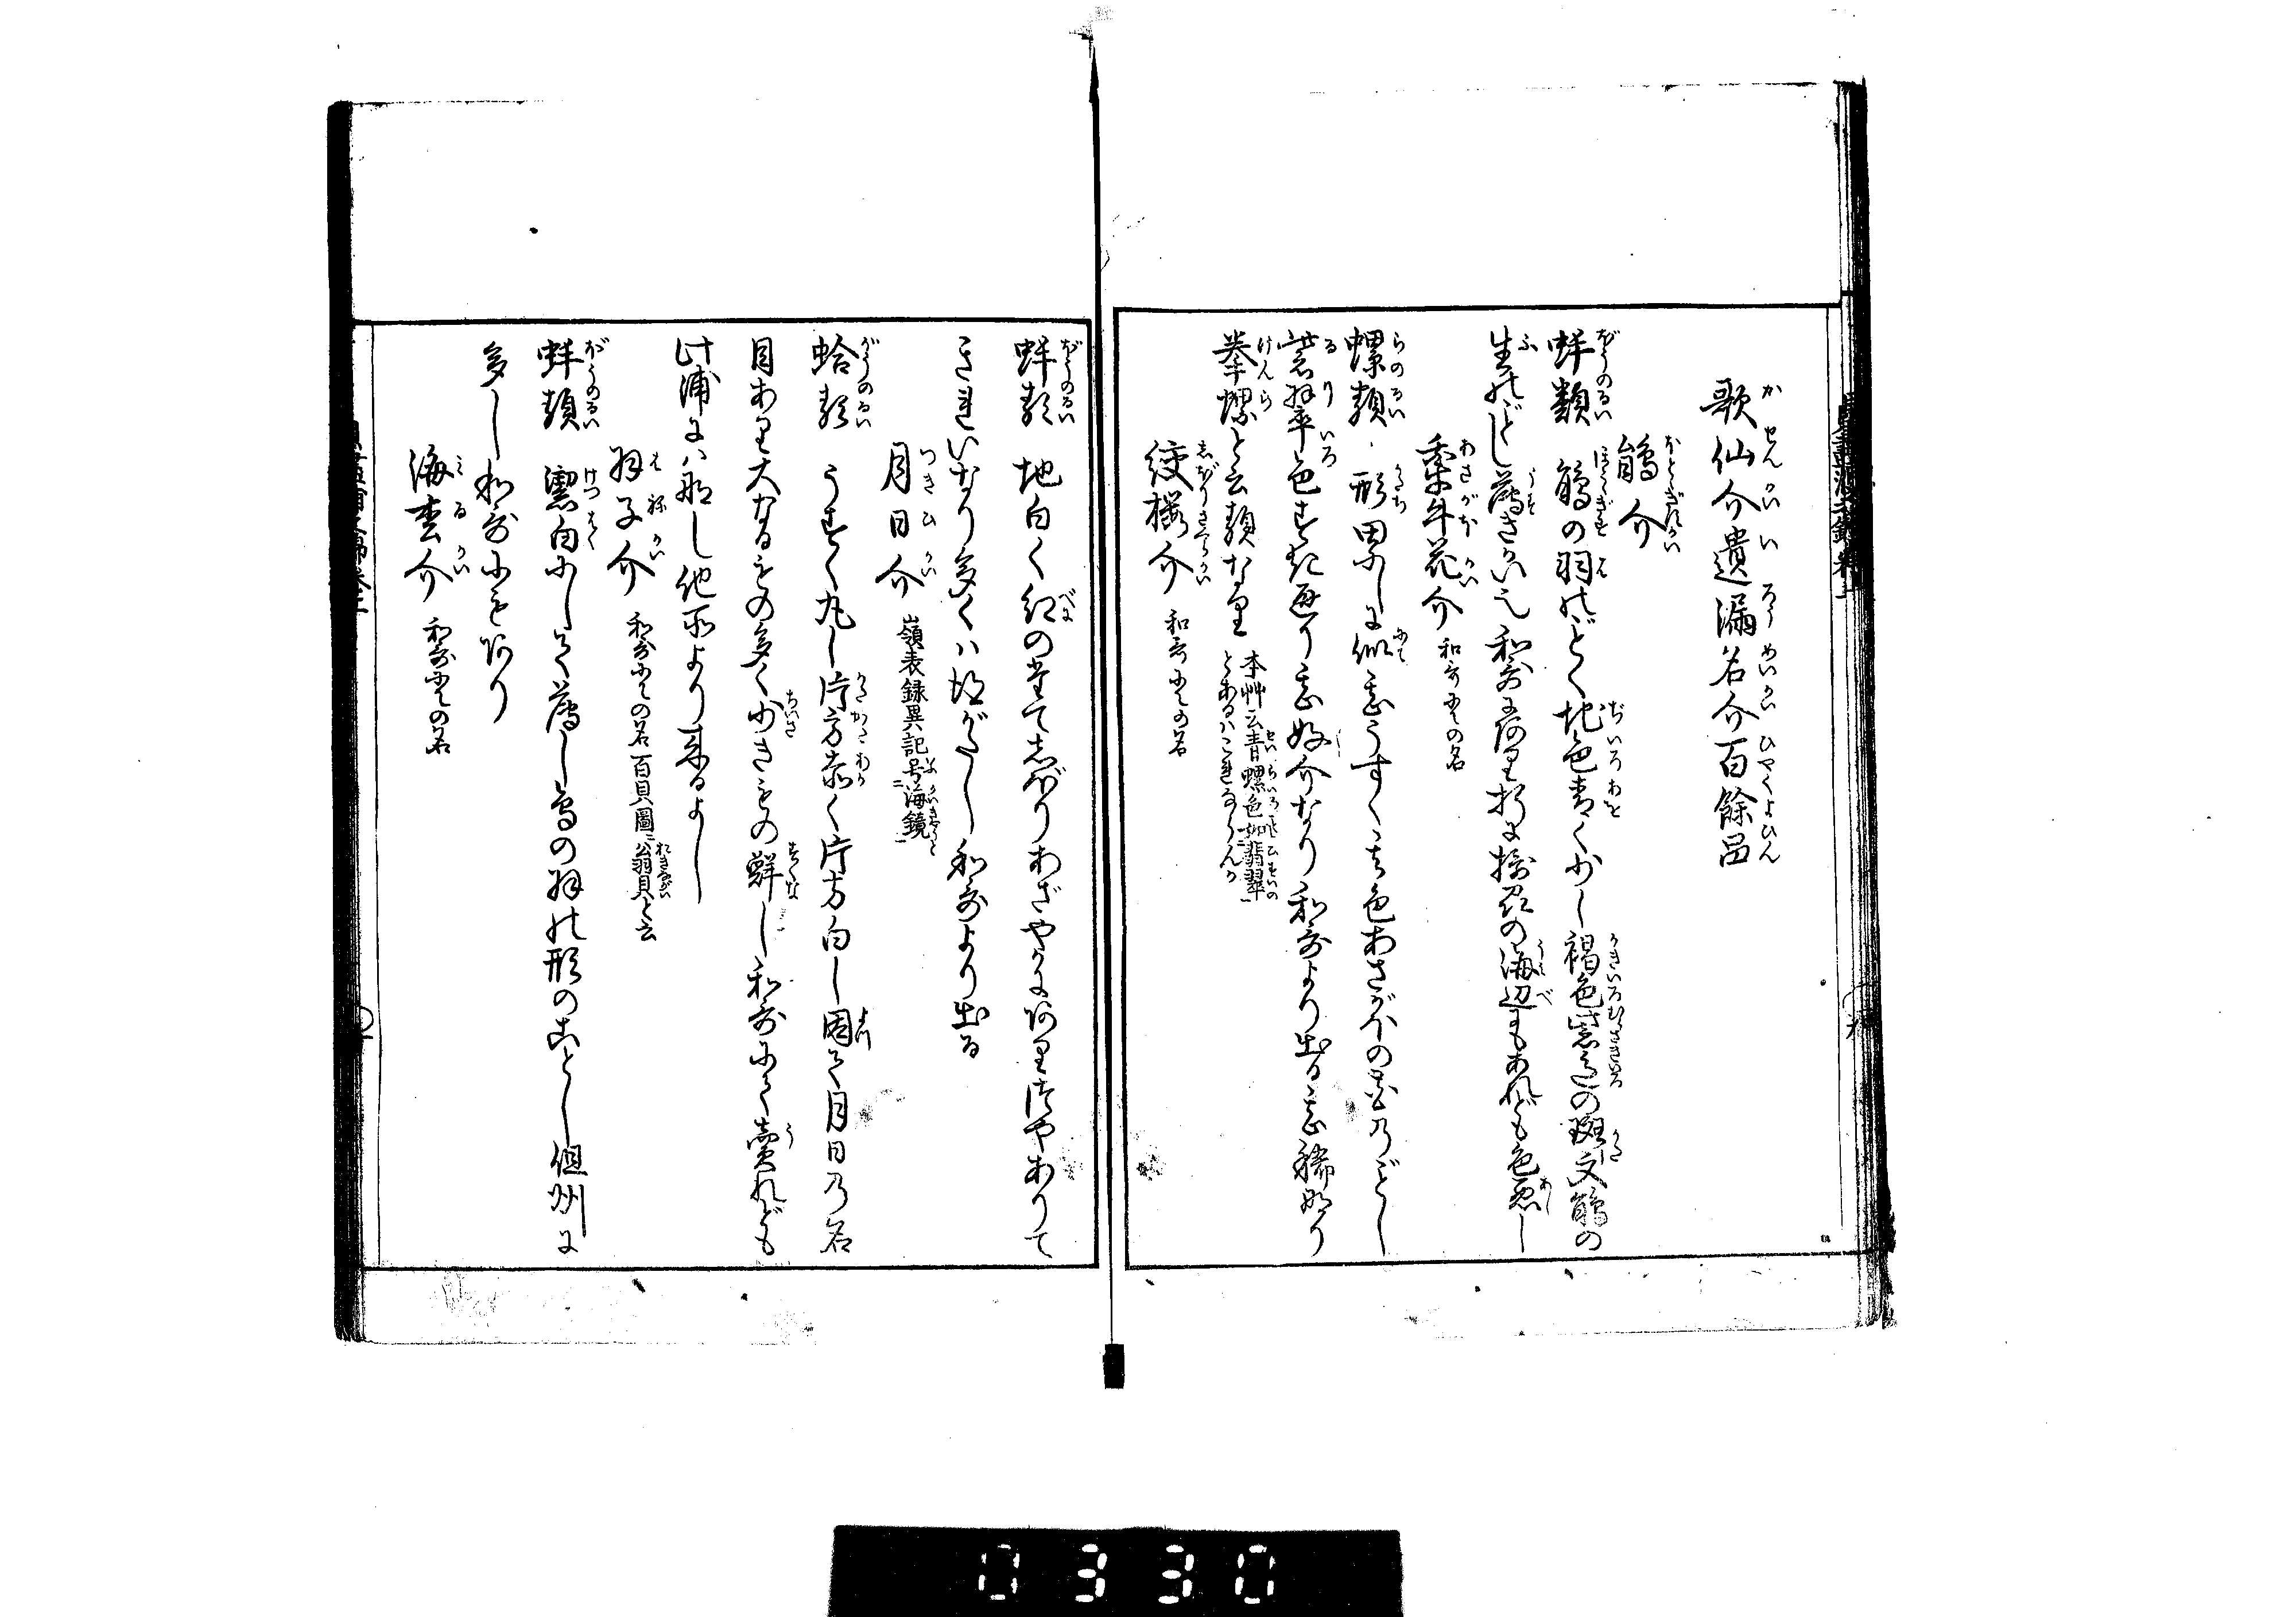 歌仙介遺漏名介百餘品
鵃介
蚌類 鵃の羽のごとく地色青く少し褐色紫色の斑文鵃の
生のごとし薄きかい也 和哥の海辺にもあれども色悪し
牽牛花介 和哥にての名
螺類 形田にしに似てうすく其色あさがほの花のごとし
色 介なり 和哥より出る 稀なり
拳螺と云類なり 本艸云青螺色如翡翠
とあるハこれならんか
絞桜介 和哥にての名
蚌類 地白く紅の しぼりあざやかにありつやありて
きれいなり多くハ得がたし和哥より出る
月日介 嶺表録異記号海鏡
蛤類 うすく丸し片方赤く片方白し因て月日の名
目あり大なるもの多く少きもの鮮し和哥にて賣れども
此浦にハなし他所より来るよし
羽子介 和哥にての名百貝圖ニ翁貝と云
蚌類 潔白にして薄し鳥の羽の形のことし但州に
多し和哥にもあり
海雲介 和哥にての名
0330